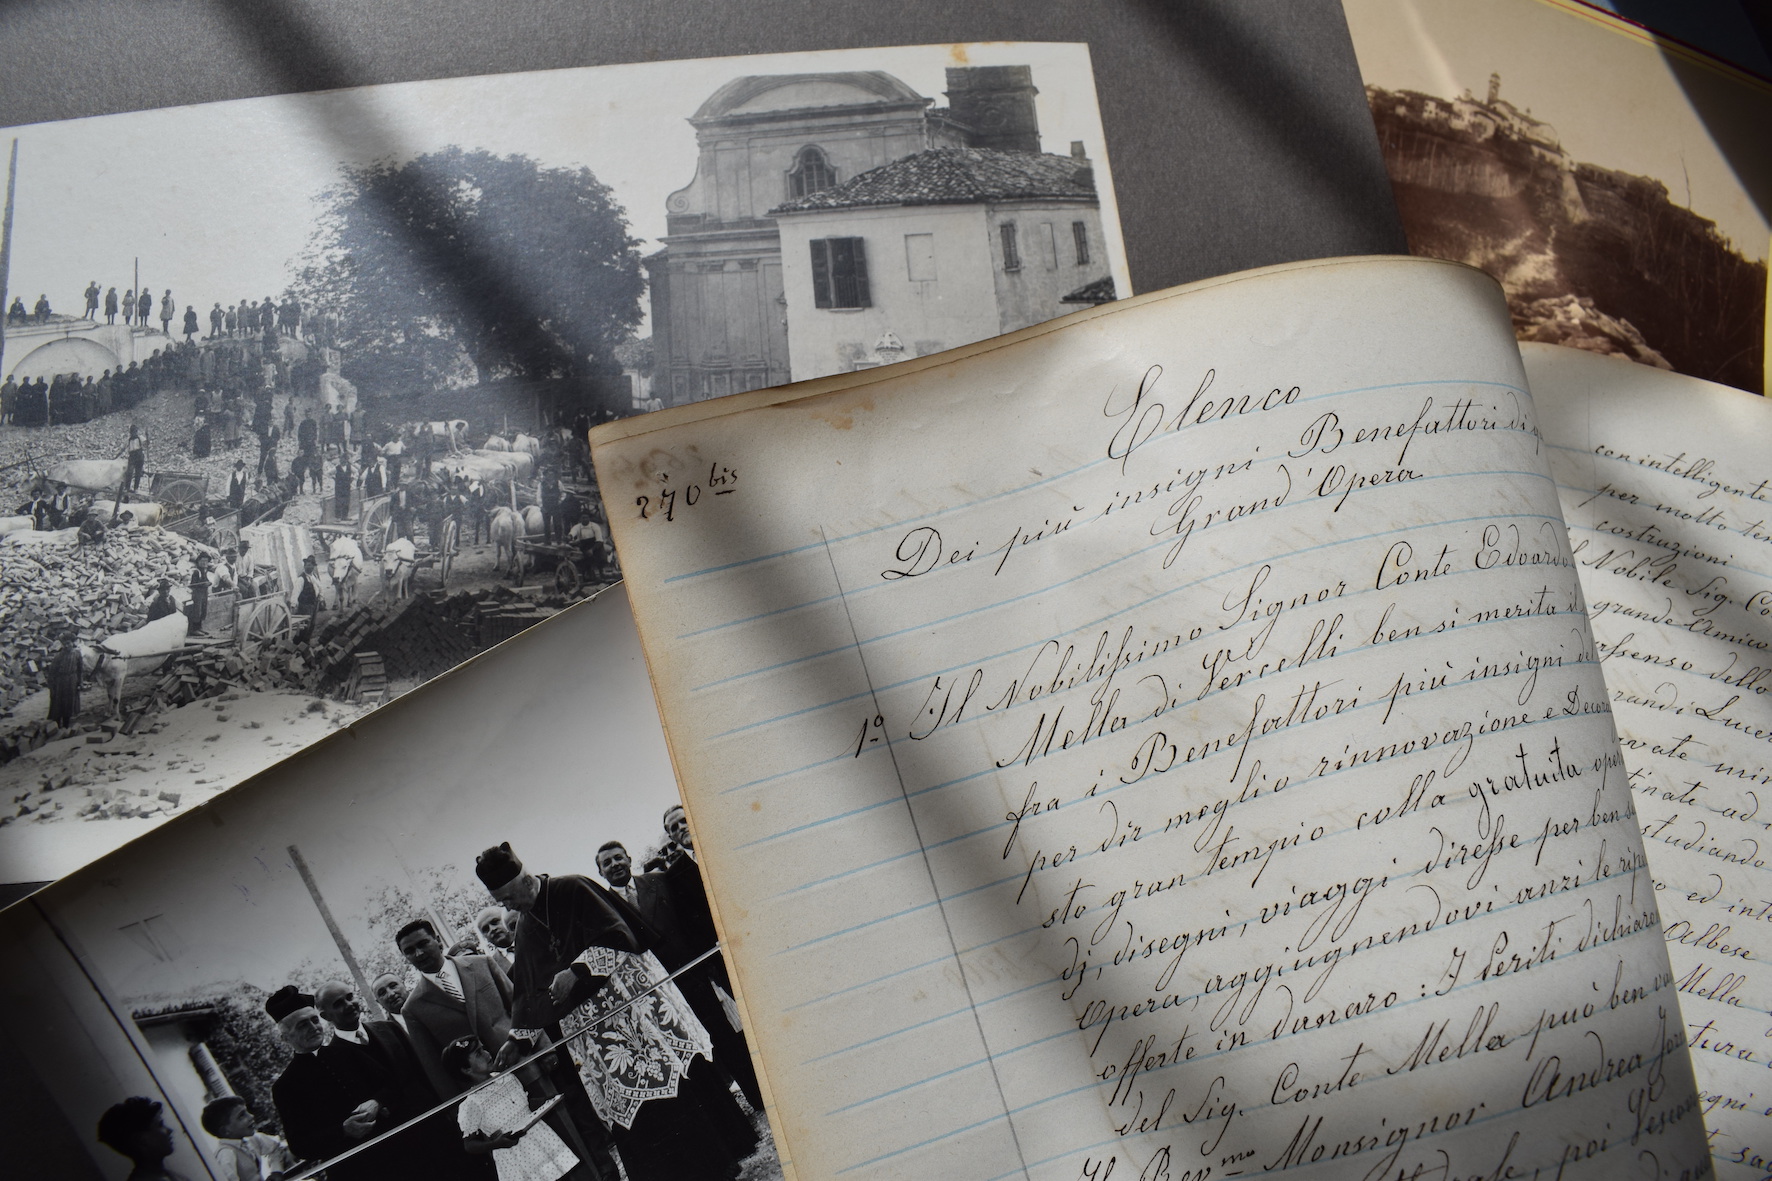 270 bis
Elenco
Dei più insigni Benefattori di
Grand'Opera
1º Il Nobilissimo Signor Conte Edoardo
Mella di Vercelli ben si merita
fra i Benefattori più insigni
per dir meglio rinnovazione e
sto gran tempio colla gratuita
dj, disegni, viaggi diresse per ben
Opera, aggiugnendovi anzi le
offerte in danaro: I Periti
del Sig. Conte Mella può ben
Il Rev.mo Monsignor Andrea
poi
con intelligente
per molto
costruzioni
Nobile Sig.
grande Amico
dello
ad
studiando
ed
Albese
Mella